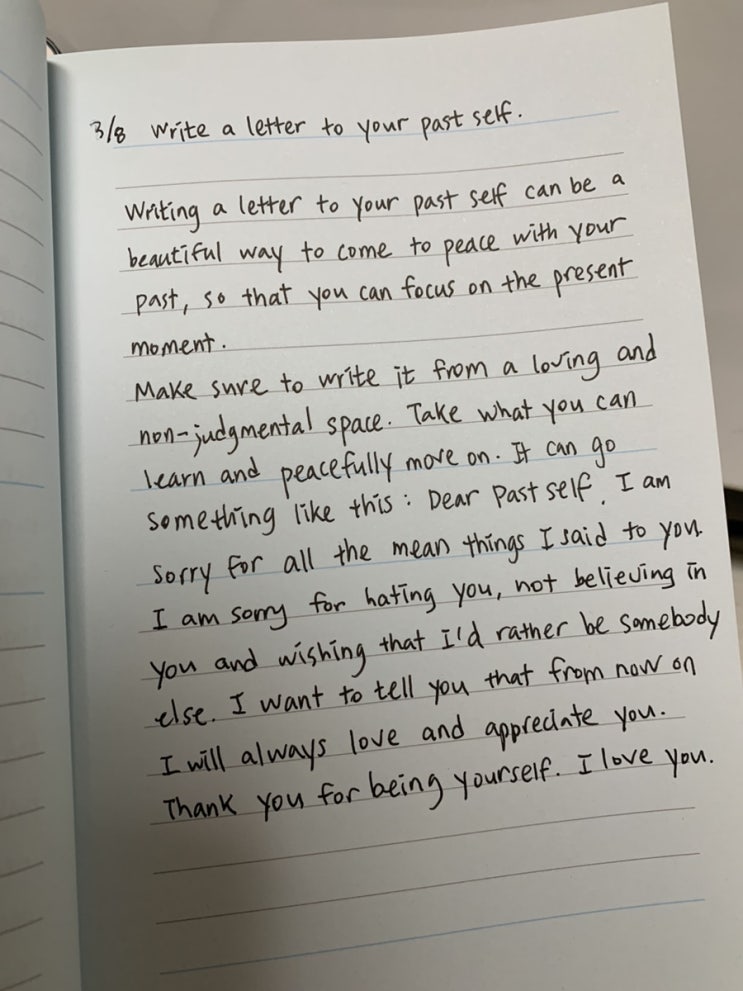 3/8 Write a letter to your past self.
Writing a letter to your past self can be a
beautiful way to come to peace with your
past, so that you can focus on the present
moment.
Make sure to write it from a loving and
non-judgmental space. Take what you can
learn and peacefully move on. It can go
something like this: Dear Past self, I am
sorry for all the mean things I said to you.
I am sorry for hating you, not believing in
you and wishing that I'd rather be somebody
else. I want to tell you that from now on
I will always love and appreciate you.
Thank you for being yourself. I love you.